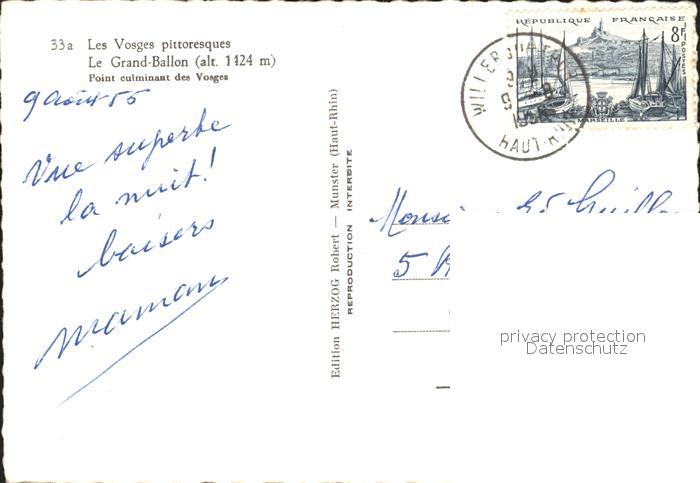 33a Les Vosges pittoresques
Le Grand-Ballon (alt. 1424 m)
Point culminant des Vosges
9 Août 55
Vue superbe
la nuit!
baisers
maman
Edition HERZOG Robert — Munster (Haut-Rhin)
REPRODUCTION INTERDITE
RÉPUBLIQUE FRANÇAISE
8F
POSTES
MARSEILLE
WILLER
HAUT-RHIN
5
privacy protection
Datenschutz